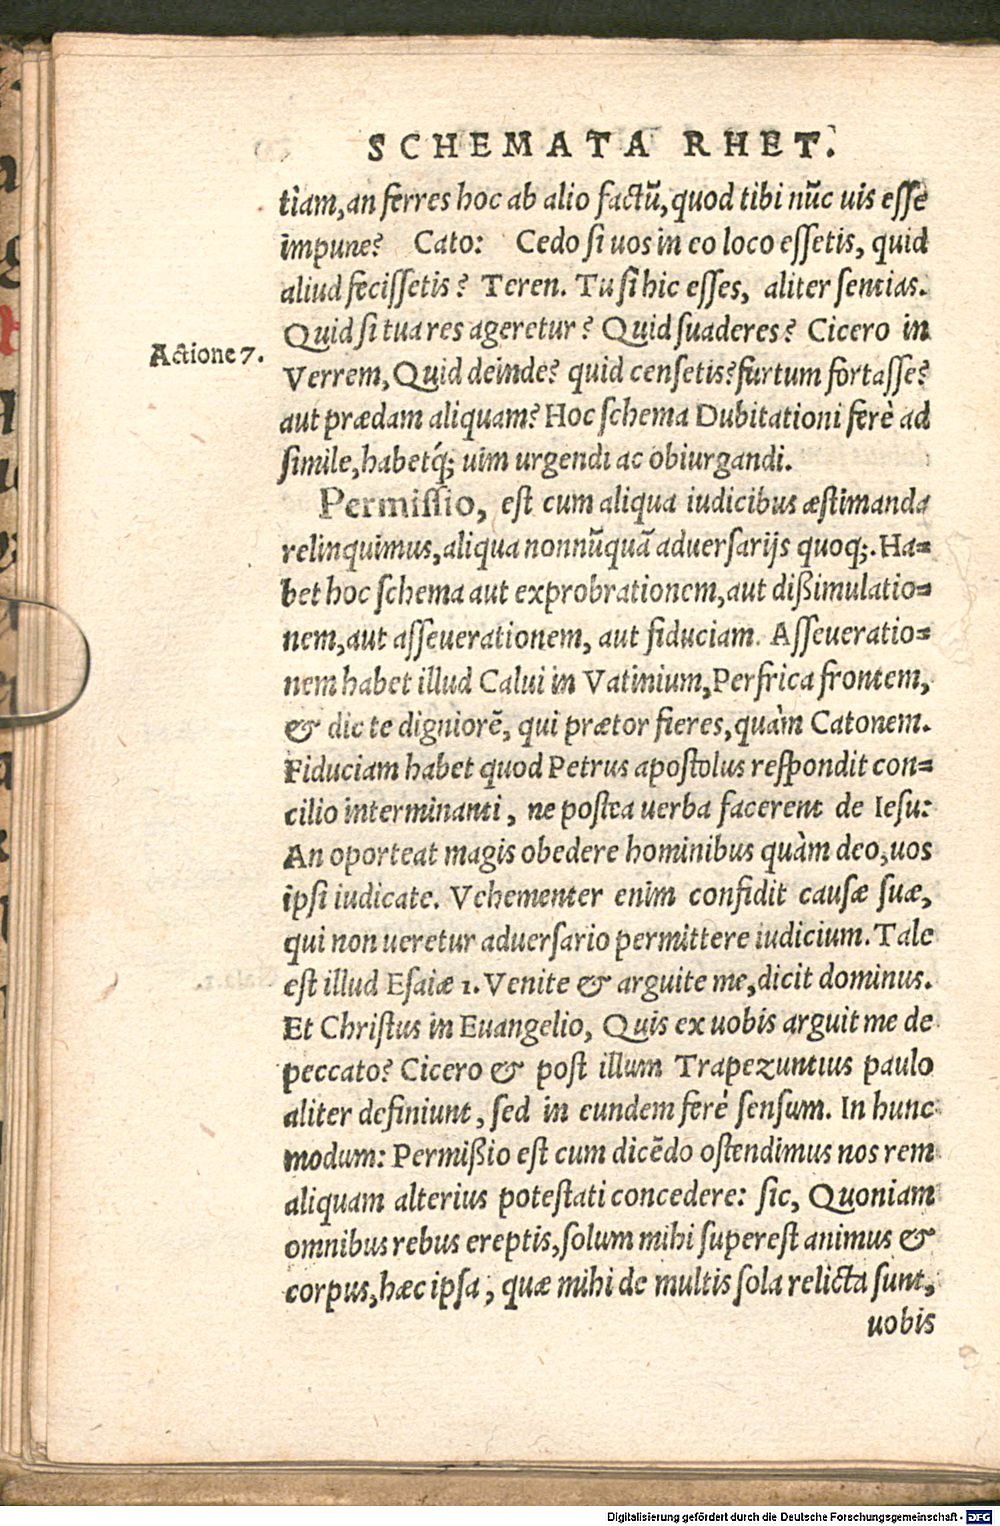 SCHEMATA RHET.
tiam,an ferres hoc ab alio factū,quod tibi nūc uis eſſe
impune? Cato: Cedo ſi uos in eo loco eſſetis, quid
aliud feciſſetis? Teren. Tu ſi hic eſſes, aliter ſentias.
Quid ſi tua res ageretur? Quid ſuaderes? Cicero in
Actione 7.
Verrem,Quid deinde? quid cenſetis?furtum fortaſſe?
aut prædam aliquam? Hoc ſchema Dubitationi ferè ad
ſimile,habetq́; uim urgendi ac obiurgandi.
Permiſſio, eſt cum aliqua iudicibus æſtimanda
relinquimus,aliqua nonnūquā aduerſarijs quoq;.Ha=
bet hoc ſchema aut exprobrationem,aut dißimulatio=
nem,aut aſſeuerationem, aut fiduciam. Aſſeueratio=
nem habet illud Calui in Vatinium,Perfrica frontem,
& dic te digniorē, qui prætor fieres,quàm Catonem.
Fiduciam habet quod Petrus apoſtolus reſpondit con=
cilio interminanti, ne poſtea uerba facerent de Ieſu:
An oporteat magis obedere hominibus quàm deo,uos
ipſi iudicate. Vehementer enim confidit cauſæ ſuæ,
qui non ueretur aduerſario permittere iudicium.Tale
eſt illud Eſaiæ 1. Venite & arguite me,dicit dominus.
Et Chriſtus in Euangelio, Quis ex uobis arguit me de
peccato? Cicero & poſt illum Trapezuntius paulo
aliter definiunt, ſed in eundem ferè ſenſum. In hunc
modum: Permißio eſt cum dicēdo oſtendimus nos rem
aliquam alterius poteſtati concedere: ſic, Quoniam
omnibus rebus ereptis,ſolum mihi ſupereſt animus &
corpus,hæc ipſa, quæ mihi de multis ſola relicta ſunt,
uobis
Digitalisierung gefördert durch die Deutsche Forschungsgemeinschaft - DFG